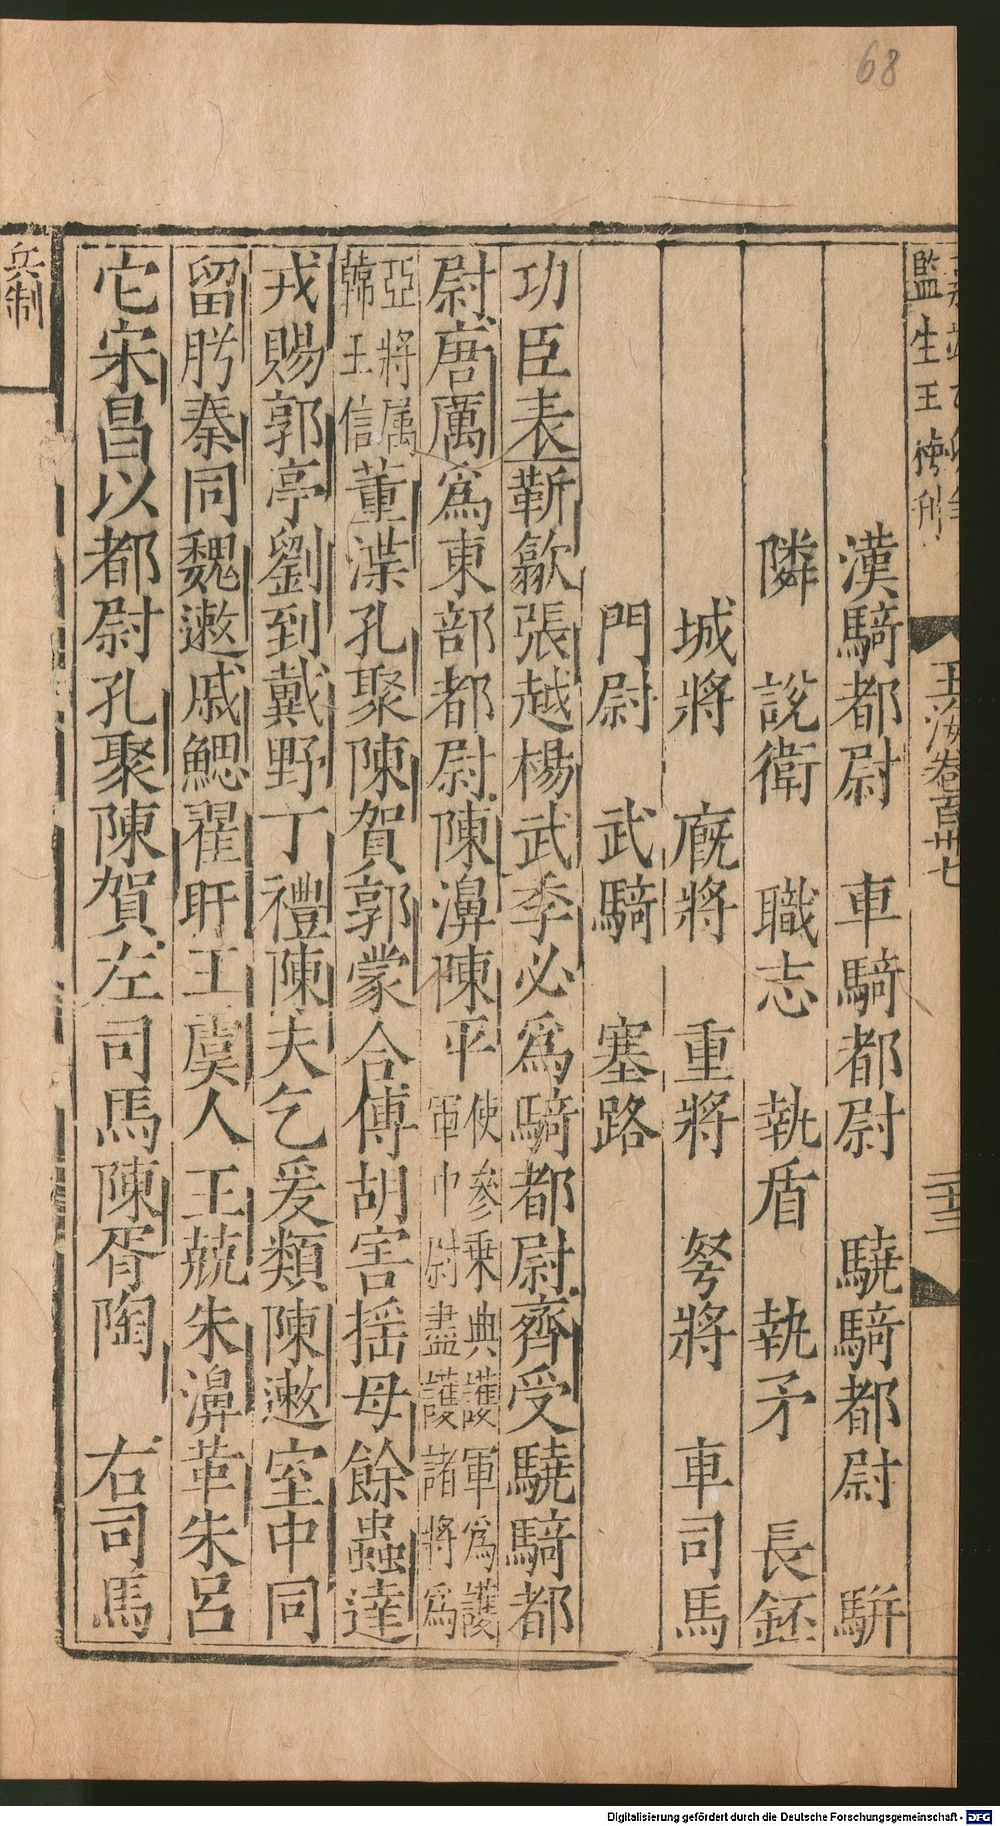 68
監生王㤙刊
玉海卷百卅七
二十三
漢騎都尉　車騎都尉　驍騎都尉　騈
隣　說衛　職志　執盾　執矛　長鉟
城將　廐將　重將　弩將　車司馬
門尉　武騎　塞路
功臣表靳歙張越楊武李必爲騎都尉齊受驍騎都
尉唐厲爲東部都尉陳濞陳平使參乘典護軍爲護軍中尉盡護諸將爲
亞將属韓王信董渫孔聚陳賀郭蒙合傅胡害揺母餘蟲達
戎賜郭亭劉到戴野丁禮陳夫乞爰類陳遬室中同
留肹秦同魏遬戚鰓翟盱王虞人王兢朱濞革朱呂
它宋昌以都尉孔聚陳賀左司馬陳胥陶　右司馬
兵制
Digitalisierung gefördert durch die Deutsche Forschungsgemeinschaft - DFG